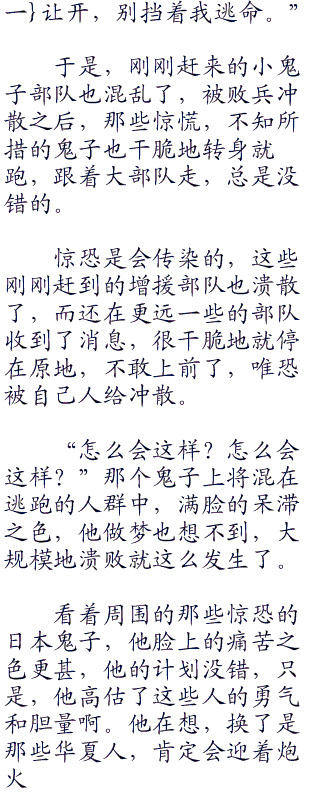 一}让开，别挡着我逃命。”
于是，刚刚赶来的小鬼
子部队也混乱了，被败兵冲
散之后，那些惊慌，不知所
措的鬼子也干脆地转身就
跑，跟着大部队走，总是没
错的。
惊恐是会传染的，这些
刚刚赶到的增援部队也溃散
了，而还在更远一些的部队
收到了消息，很干脆地就停
在原地，不敢上前了，唯恐
被自己人给冲散。
“怎么会这样？怎么会
这样？”那个鬼子上将混在
逃跑的人群中，满脸的呆滞
之色，他做梦也想不到，大
规模地溃败就这么发生了。
看着周围的那些惊恐的
日本鬼子，他脸上的痛苦之
色更甚，他的计划没错，只
是，他高估了这些人的勇气
和胆量啊。他在想，换了是
那些华夏人，肯定会迎着炮
火